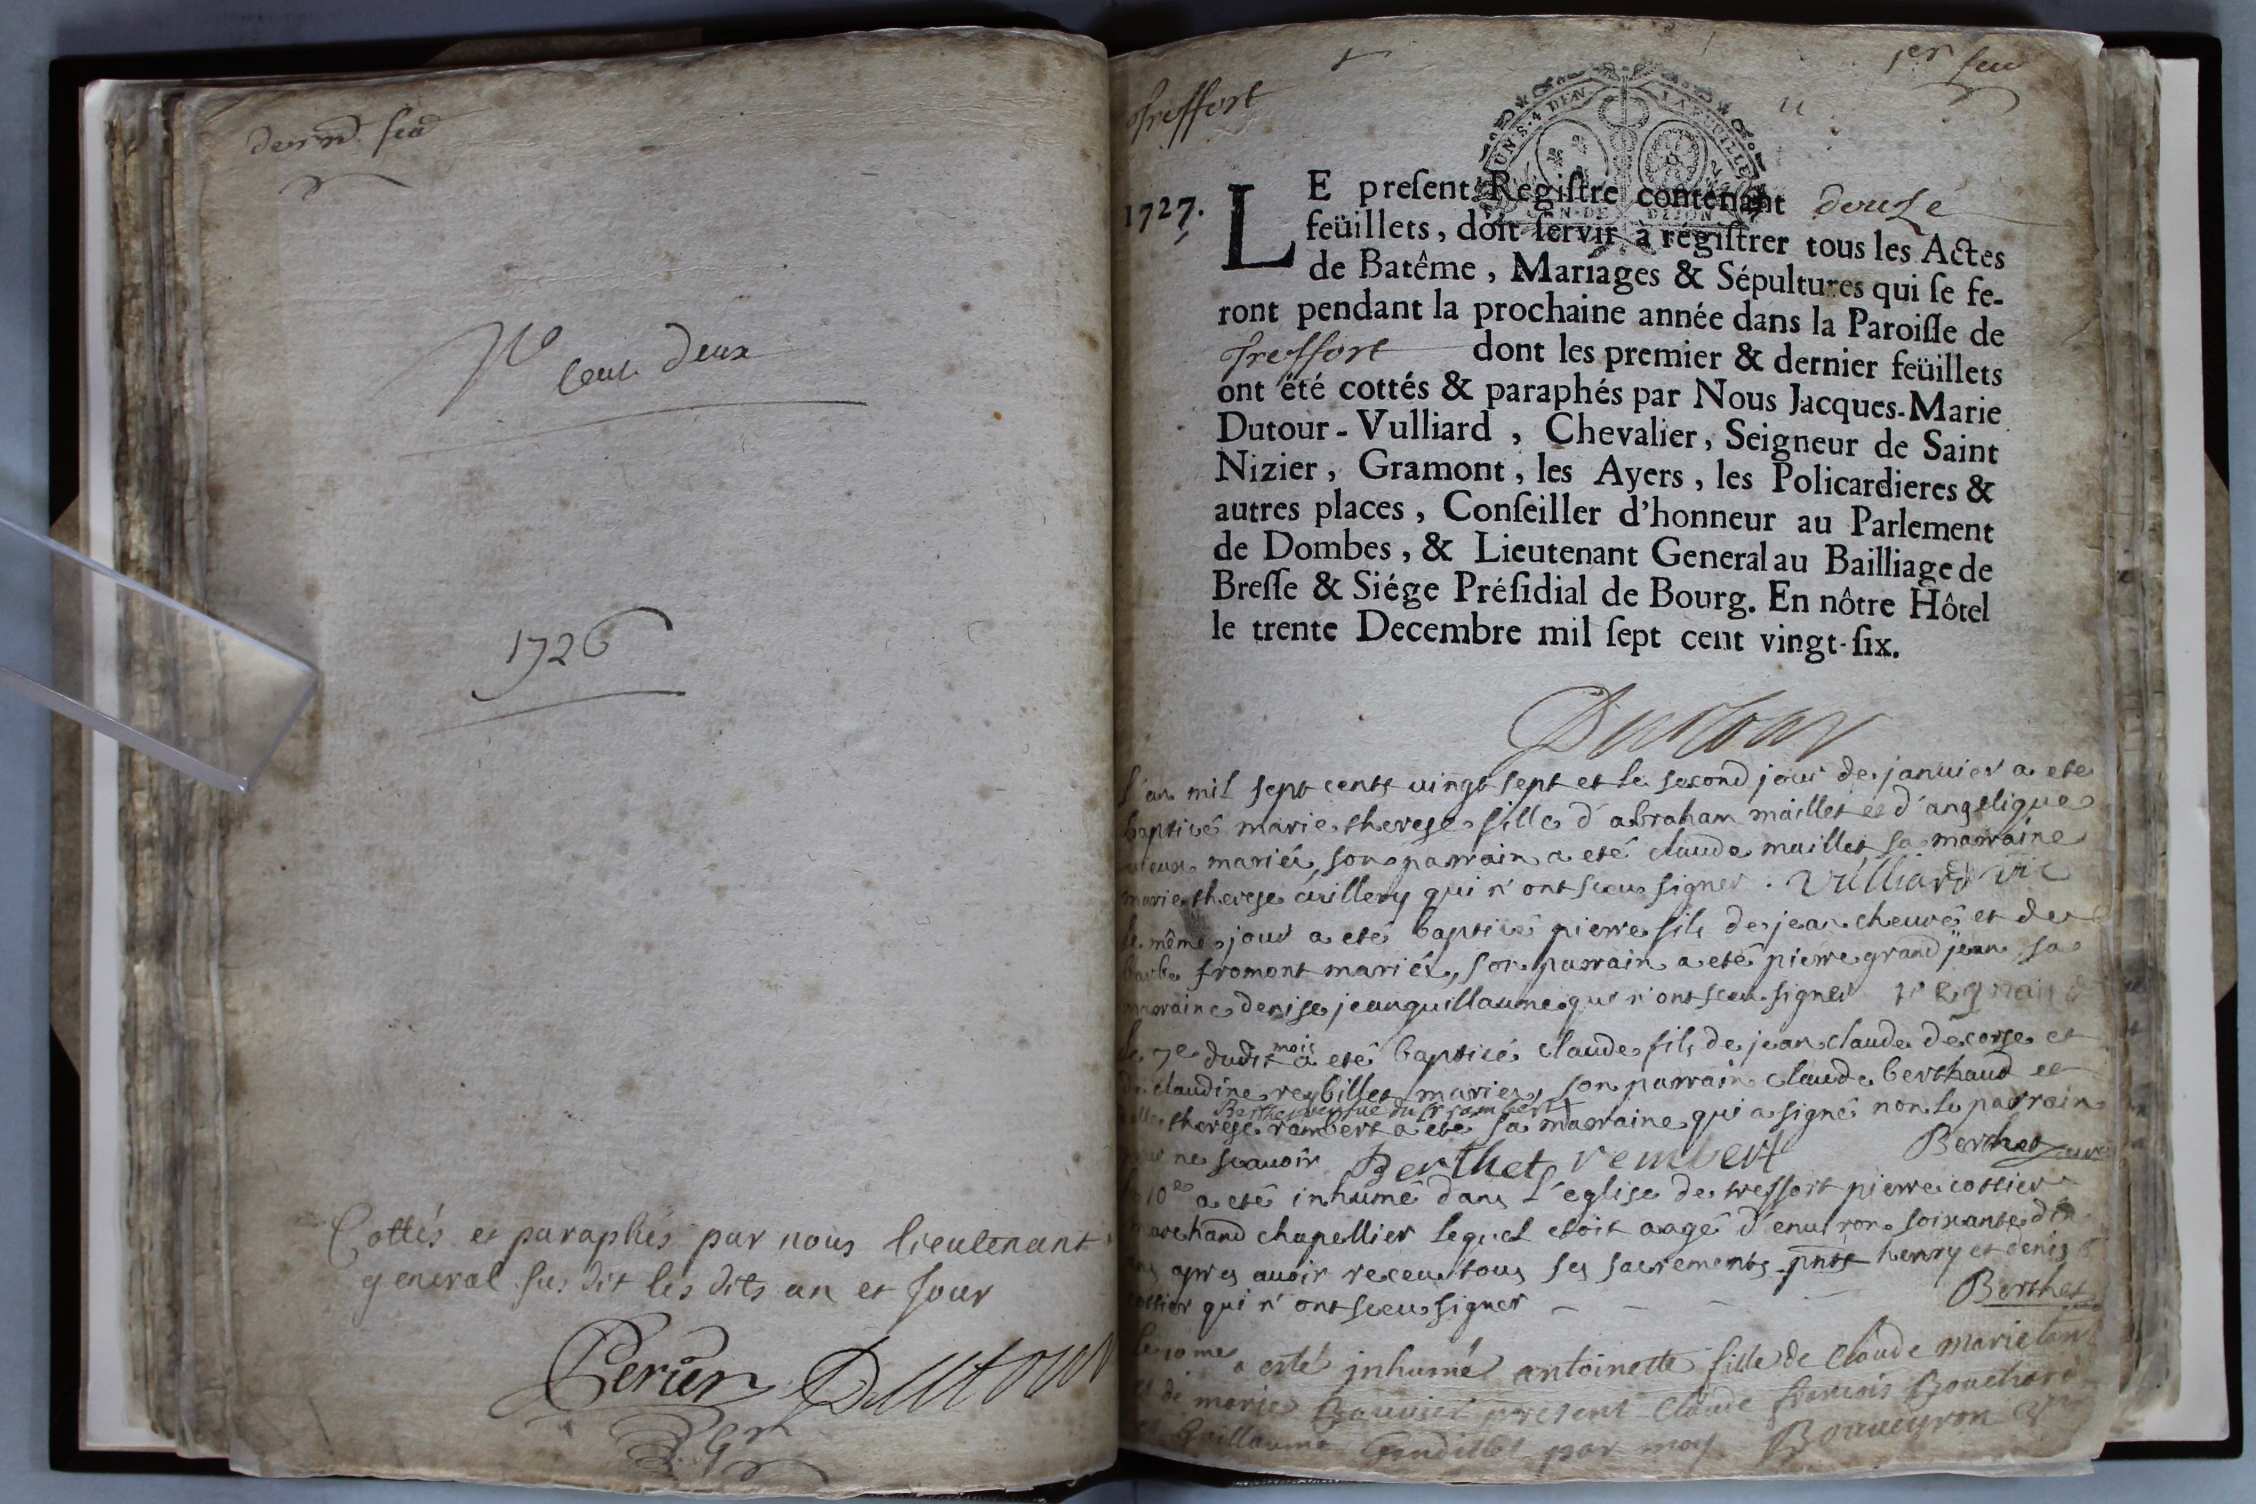 N° Cent deux
1726
Cottés et paraphés par nous lieutenant
general susdit les dits an et jour
Perier Dutour
Treffort
1er feu
UN·S·4·DEN· LA FEUILLE
GEN·DE DIJON
1727.
LE present Regiſtre contenant douze
feüillets, doit ſervir à régiſtrer tous les Actes
de Batême, Mariages & Sépultures qui ſe fe-
ront pendant la prochaine année dans la Paroiſſe de
Treffort dont les premier & dernier feüillets
ont été cottés & paraphés par Nous Jacques-Marie
Dutour-Vulliard, Chevalier, Seigneur de Saint
Nizier, Gramont, les Ayers, les Policardieres &
autres places, Conſeiller d'honneur au Parlement
de Dombes, & Lieutenant General au Bailliage de
Breſſe & Siége Préſidial de Bourg. En nôtre Hôtel
le trente Decembre mil ſept cent vingt-ſix.
Dutour
L'an mil sept cents vingt sept et le second jour de janvier a eté
baptisé marie therese fille d'abraham maillet et d'angelique
mariés, son parrain a eté claude maillet sa marraine
marie therese cuillery qui n'ont sceu signer. Vulliard vic
le même jour a eté baptisé pierre fils de jean cheuré et de
barbe fromont mariés, son parrain a eté pierre grand jean sa
marraine denise jeanguillaume qui n'ont sceu signer
le 7e dudit mois a eté baptisé claude fils de jean claude decorse et
de claudine reybillet mariés, son parrain claude berthaud et
delle therese rambert a eté sa marraine qui a signé non le parrain
pour ne scauoir Berthet rembert Berthet curé
le 10e a eté inhumé dans l'eglise de treffort pierre cottier
marchand chapellier lequel etoit aagé d'enuiron soixante dix
ans apres auoir receu tous ses sacrements pnts henry et denis
cottier qui n'ont sceu signer Berthet
a esté inhumé antoinette fille de Claude
et de marie present Claude francois Bouchard
et Guillaume par moy Bouueyron